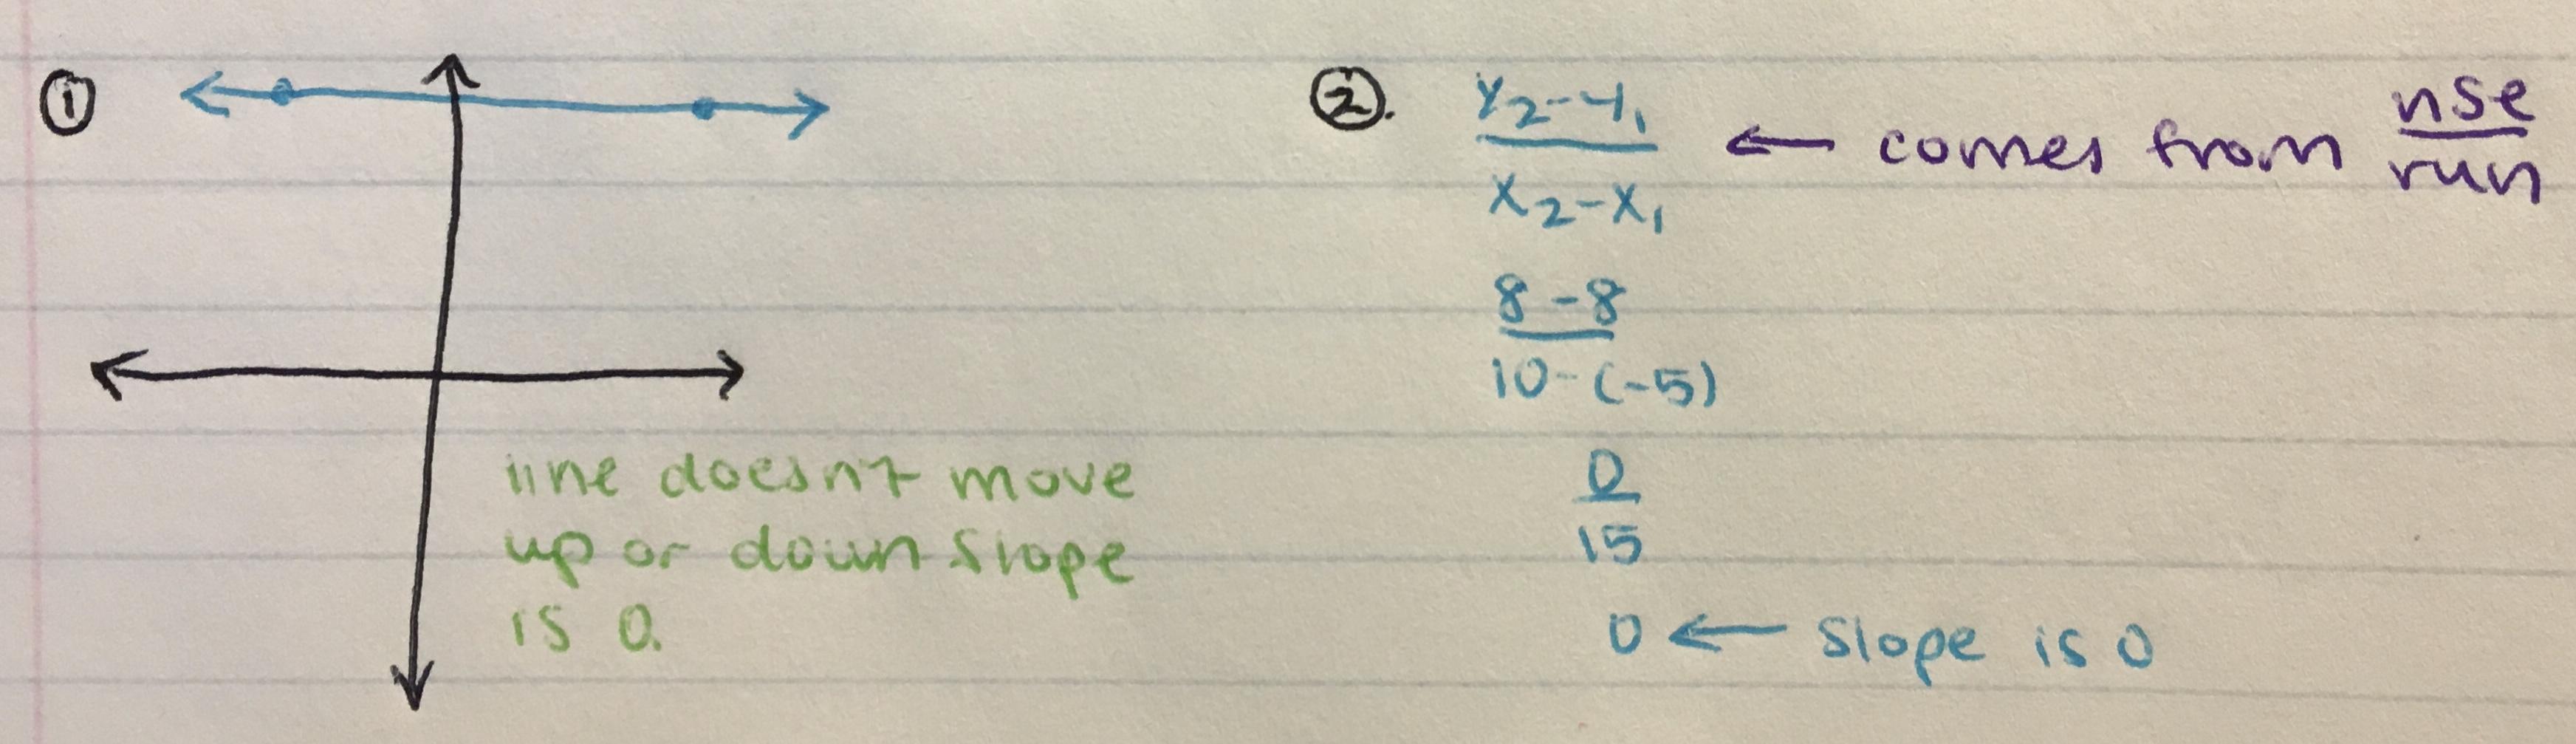 ①
line doesn't move
up or down slope
is 0.
②.
y₂-y₁
x₂-x₁
← comes from rise
run
8-8
10-(-5)
0
15
0 ← slope is 0